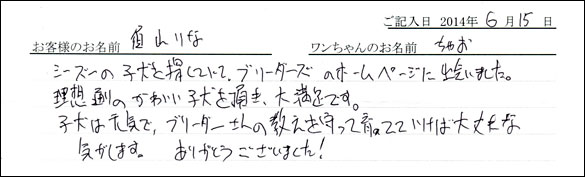 ご記入日 2014年 6月 15日
お客様のお名前 りな ワンちゃんのお名前 ちゃお
シーズーの子犬を探していて、ブリーダーズのホームページに出会いました。
理想通りのかわいい子犬を頂き、大満足です。
子犬は元気で、ブリーダーさんの教えを守って育てていけば大丈夫な
気がします。 ありがとうございました!